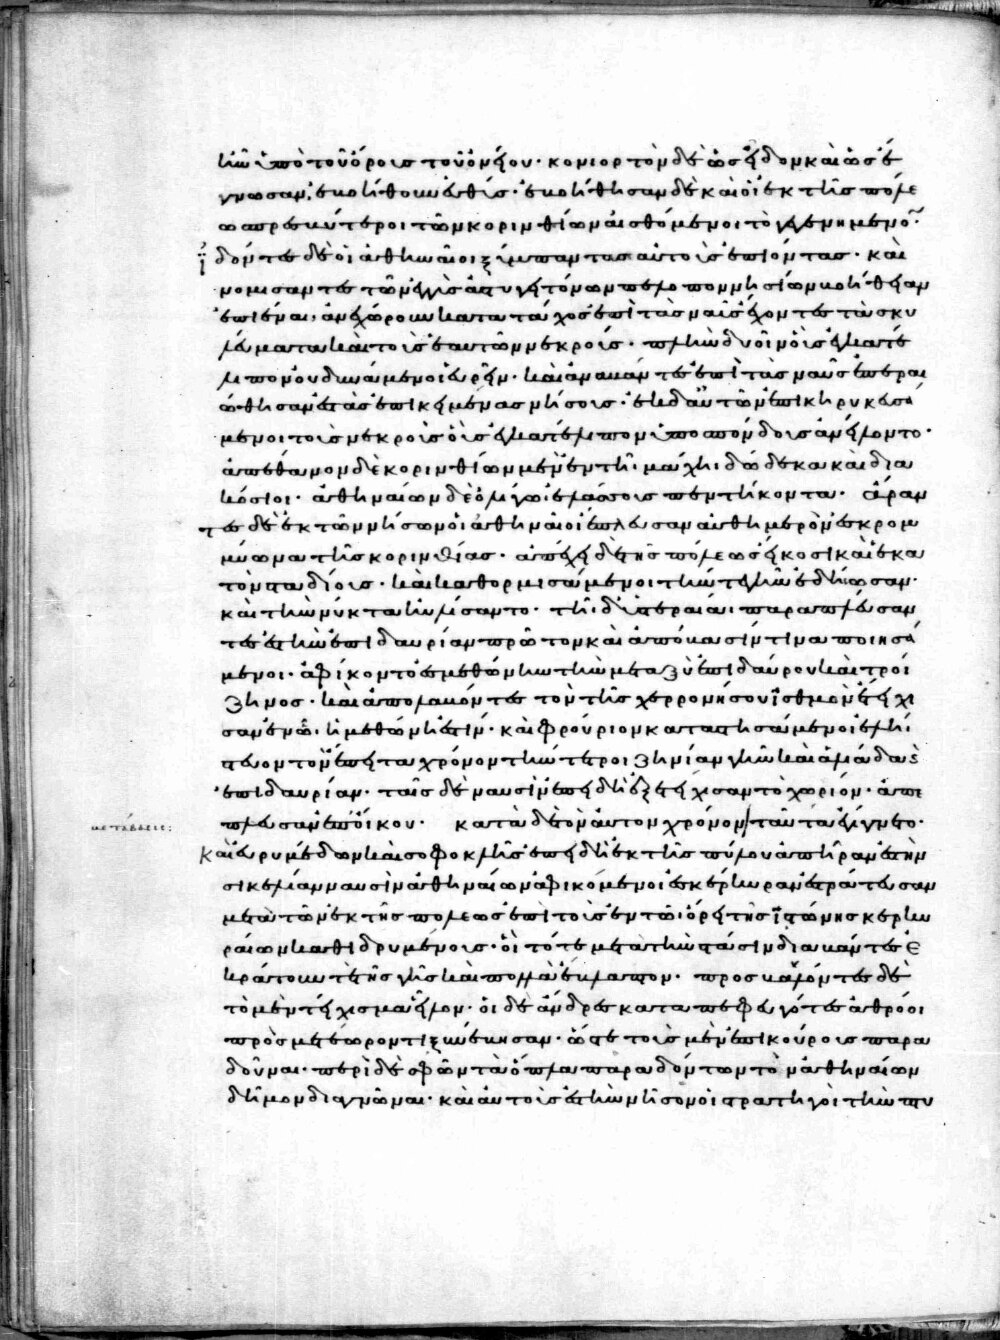 ἦν ὑπὸ τοῦ ὄρους τοῦ ὀνείου· κονιορτὸν δὲ ὡς εἶδον καὶ ὡς ἔ
γνωσαν, ἐβοήθουν εὐθύς· ἐβοήθησαν δὲ καὶ οἱ ἐκ τῆς πόλε
ως πρεσβύτεροι τῶν κορινθίων αἰσθόμενοι τὸ γεγενημένον·
ἰδόντες δὲ οἱ ἀθηναῖοι ξύμπαντας αὐτοὺς ἐπιόντας· καὶ
νομίσαντες τῶν ἐγγὺς ἀστυγειτόνων πελοποννησίων βοήθειαν
ἐπιέναι, ἀνεχώρουν κατὰ τάχος ἐπὶ τὰς ναῦς ἔχοντες τὰ σκυ
λεύματα καὶ τοὺς ἑαυτῶν νεκρούς· πλὴν δυοῖν οὓς ἐγκατέ
λιπον οὐ δυνάμενοι εὑρεῖν· καὶ ἀναβάντες ἐπὶ τὰς ναῦς ἐπεραι
ώθησαν ἐς τὰς ἐπικειμένας νήσους· ἐκ δ' αὐτῶν ἐπικηρυκευσά
μενοι τοὺς νεκροὺς οὓς ἐγκατέλιπον ὑποσπόνδους ἀνείλοντο·
ἀπέθανον δὲ κορινθίων μὲν ἐν τῆι μάχηι δώδεκα καὶ δια
κόσιοι· ἀθηναίων δὲ ὀλίγωι ἐλάσσους πεντήκοντα· ἄραν
τες δὲ ἐκ τῶν νήσων οἱ ἀθηναῖοι ἔπλευσαν αὐθημερὸν ἐς κρομ
μύωνα τῆς κορινθίας· ἀπέχει δὲ τῆς πόλεως εἴκοσι καὶ ἑκα
τὸν σταδίους· καὶ καθορμισάμενοι τήν τε γῆν ἐδῄωσαν·
καὶ τὴν νύκτα ηὐλίσαντο· τῆι δ' ὑστεραίαι παραπλεύσαν
τες ἐς τὴν ἐπιδαυρίαν πρῶτον καὶ ἀπόβασίν τινα ποιησά
μενοι· ἀφίκοντο ἐς μεθώνην τὴν μεταξὺ ἐπιδαύρου καὶ τροι
ζῆνος· καὶ ἀπολαβόντες τὸν τῆς χερρονήσου ἰσθμὸν ἐτείχι
σαν ἐν ὧι ἡ μεθώνη ἐστίν· καὶ φρούριον καταστησάμενοι ἐλήι
στευον τὸν ἔπειτα χρόνον τήν τε τροιζηνίαν γῆν καὶ ἁλιάδα καὶ
ἐπιδαυρίαν· ταῖς δὲ ναυσὶν ἐπειδὴ ἐξετείχισαν τὸ χωρίον· ἀπέ
πλευσαν ἐπ' οἴκου· κατὰ δὲ τὸν αὐτὸν χρόνον ταῦτα ἐγίγνετο·
μετάβασις:
καὶ εὐρυμέδων καὶ σοφοκλῆς ἐπειδὴ ἐκ τῆς πύλου ἀπῆραν ἐς τὴν
σικελίαν ναυσὶν ἀθηναίων ἀφικόμενοι ἐς κέρκυραν ἐστράτευσαν
μετὰ τῶν ἐκ τῆς πόλεως ἐπὶ τοὺς ἐν τῶι ὄρει τῆς ἰστώνης κερκυ
ραίων καθιδρυμένους· οἳ τότε μετὰ τὴν στάσιν διαβάντες ἐ
κράτουν τε τῆς γῆς καὶ πολλὰ ἔβλαπτον· προσβαλόντες δὲ
τὸ μὲν τείχισμα εἷλον· οἱ δὲ ἄνδρες καταπεφευγότες ἀθρόοι
πρὸς μετέωρόν τι ξυνέβησαν· ὥστε τοὺς μὲν ἐπικούρους παρα
δοῦναι· περὶ δὲ σφῶν τὰ ὅπλα παραδόντων τὸν ἀθηναίων
δῆμον διαγνῶναι· καὶ αὐτοὺς ἐς τὴν νῆσον οἱ στρατηγοὶ τὴν πτυ